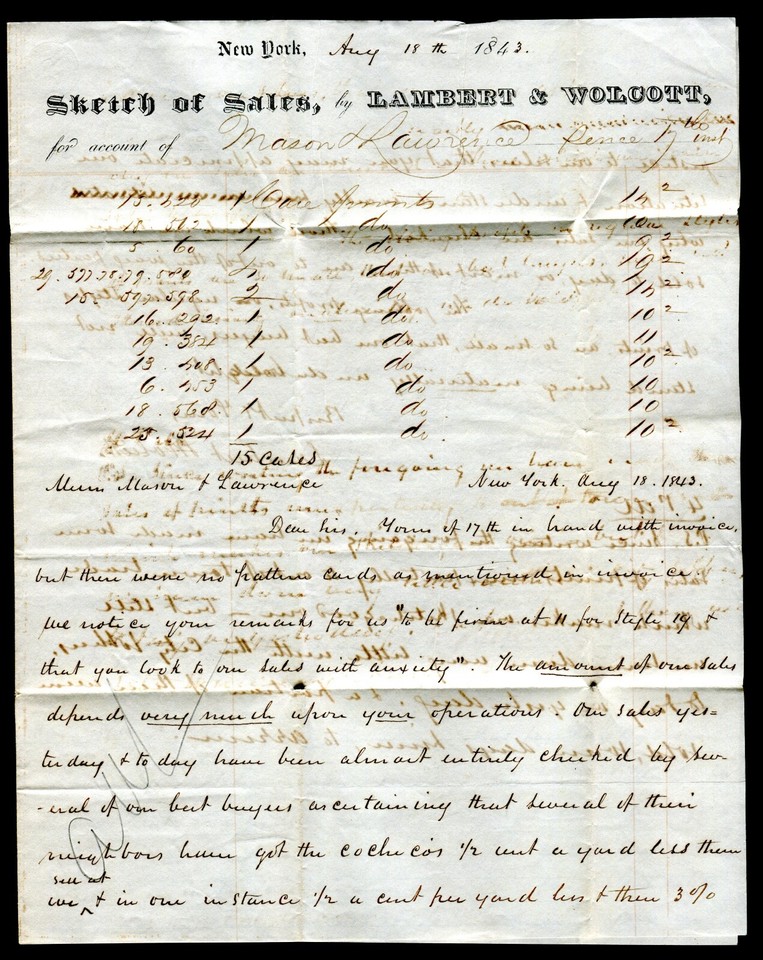 New York, Aug 18th 1843.
Sketch of Sales, by LAMBERT & WOLCOTT,
for account of Mason & Lawrence since 17th inst
1 Case prints 14²
18. 502 1 do
5. 60 1 do 9²
29. 577.78.79.580 4 do 10²
15. 597.598 2 do
16. 292 1 do 10²
19. 382 1 do 11
13. 508 1 do 10²
6. 453 1 do 10
18. 568 1 do 10
25. 524 1 do 10²
15 cases
Messrs Mason & Lawrence New York. Aug 18. 1843.
Dear Sirs. Yours of 17th in hand with invoice,
but there were no pattern cards as mentioned in invoice
we notice your remarks for us "to be firm at 11 for Style 19 &
that you look to our sales with anxiety". The amount of our sales
depends very much upon your operations. Our sales yes=
terday & to day have been almost entirely checked by sev-
-eral of our best buyers ascertaining that several of their
neighbors have got the cochecos 1/2 cent a yard less than
sell at
we ^ & in one instance 1/2 a cent per yard less & then 3%